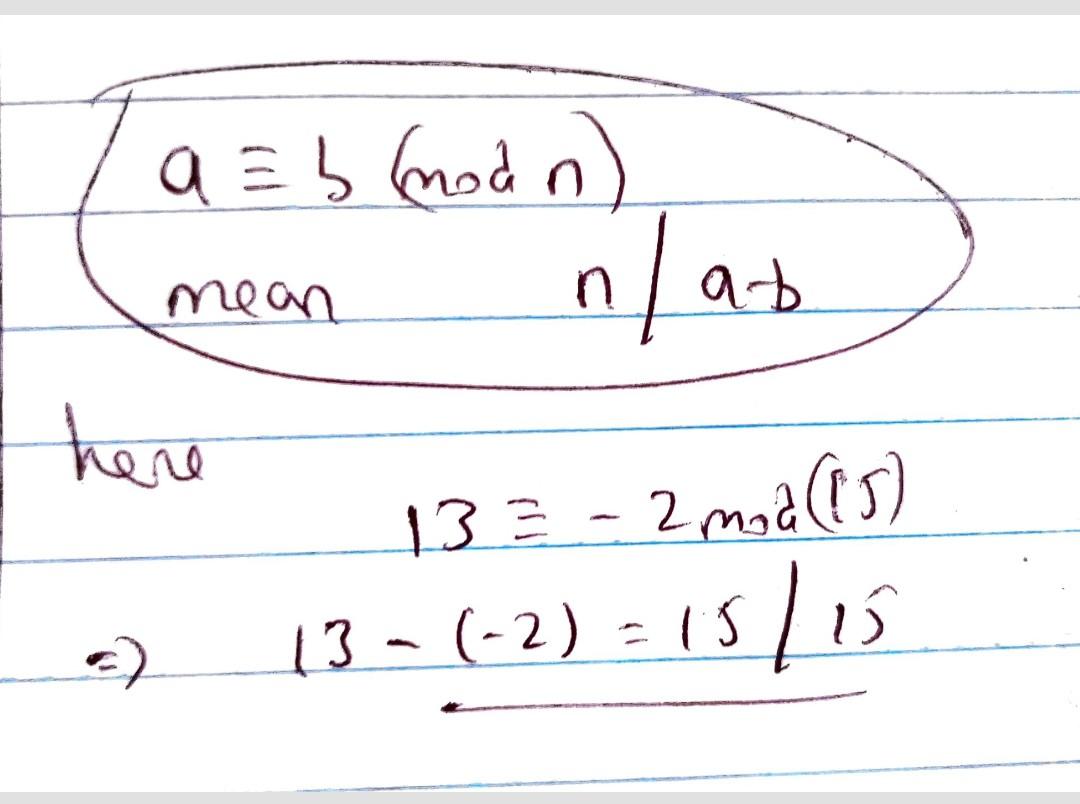 a ≡ b (mod n)
mean n / a-b
here
13 ≡ - 2 mod (15)
=) 13 - (-2) = 15 / 15